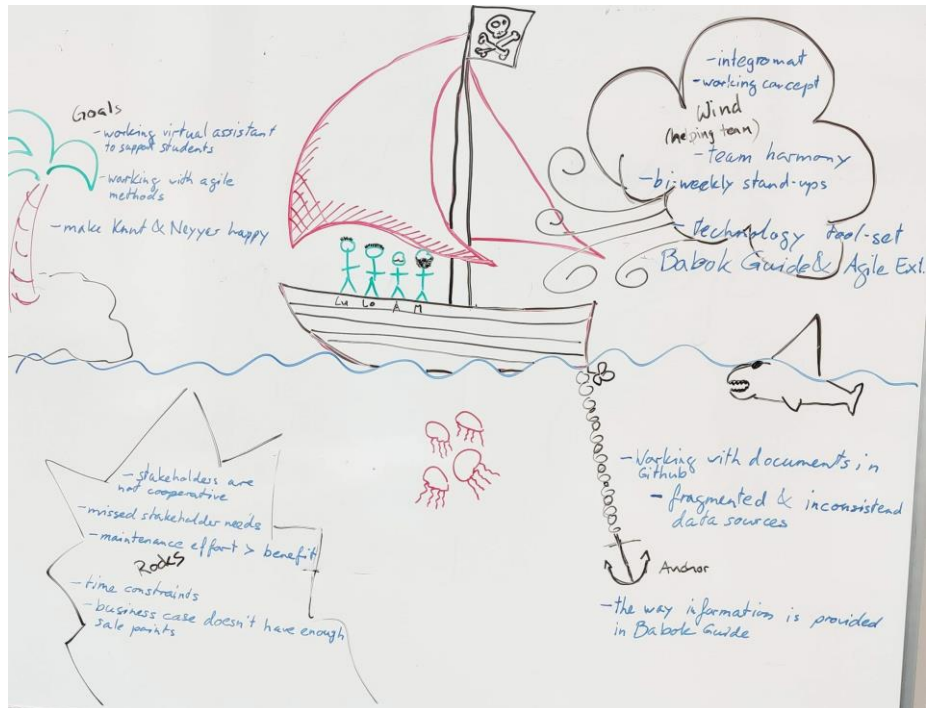 Goals
- working virtual assistant
to support students
- working with agile
methods
- make Knut & Neyyer happy
- integromat
- working concept
Wind
(helping team)
- team harmony
- bi-weekly stand-ups
- technology tool-set
Babok Guide & Agile Ext.
Lu Lo A M
- stakeholders are
not cooperative
- missed stakeholder needs
- maintenance effort > benefit
Rocks
- time constraints
- business case doesn't have enough
sale points
- Working with documents in
Github
- fragmented & inconsistend
data sources
Anchor
- the way information is provided
in Babok Guide